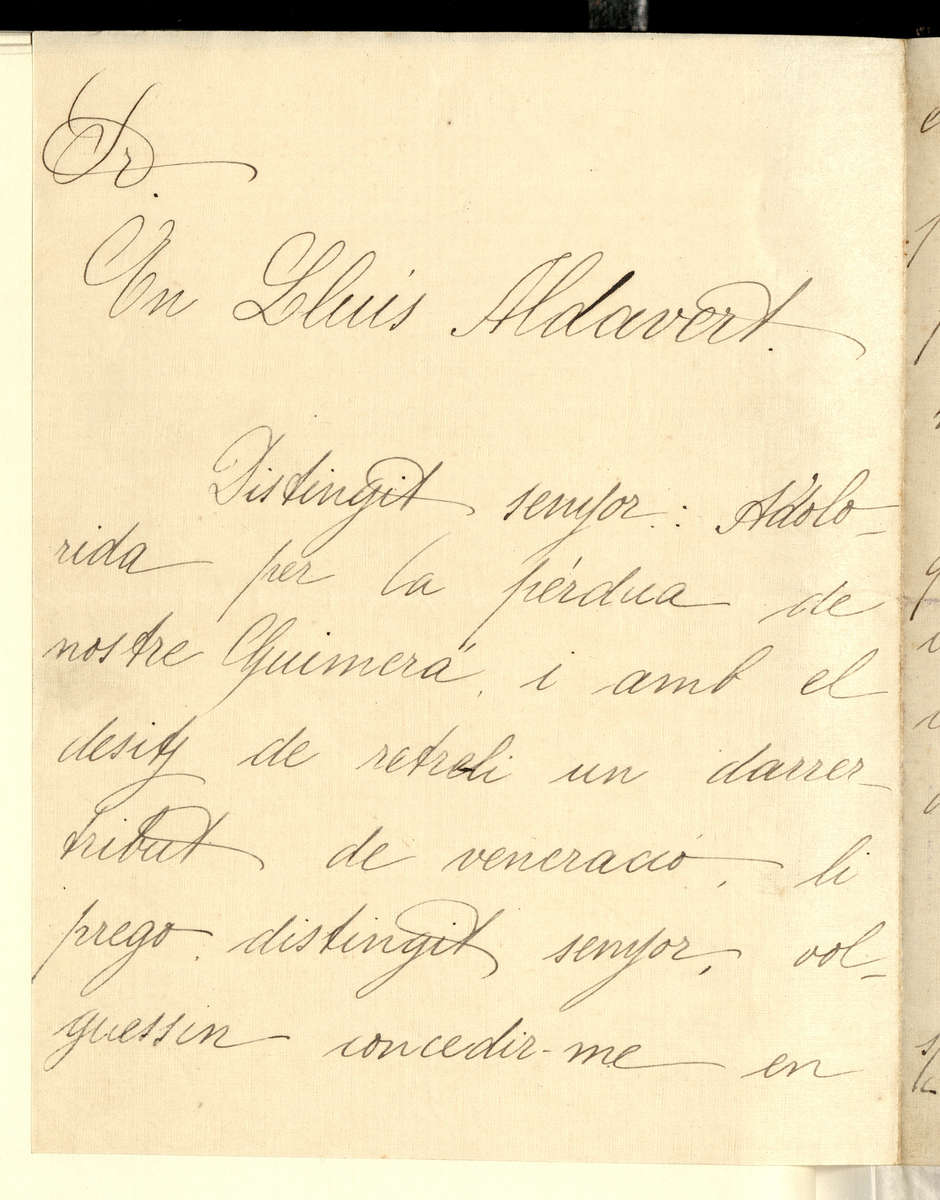 Sr.
En Lluís Aldavert.
Distingit senyor: Adolo-
rida per la pèrdua de
nostre Guimerà, i amb el
desitj de retreli un darrer
tribut de veneració, li
prego, distingit senyor, vol-
guessin concedir-me en